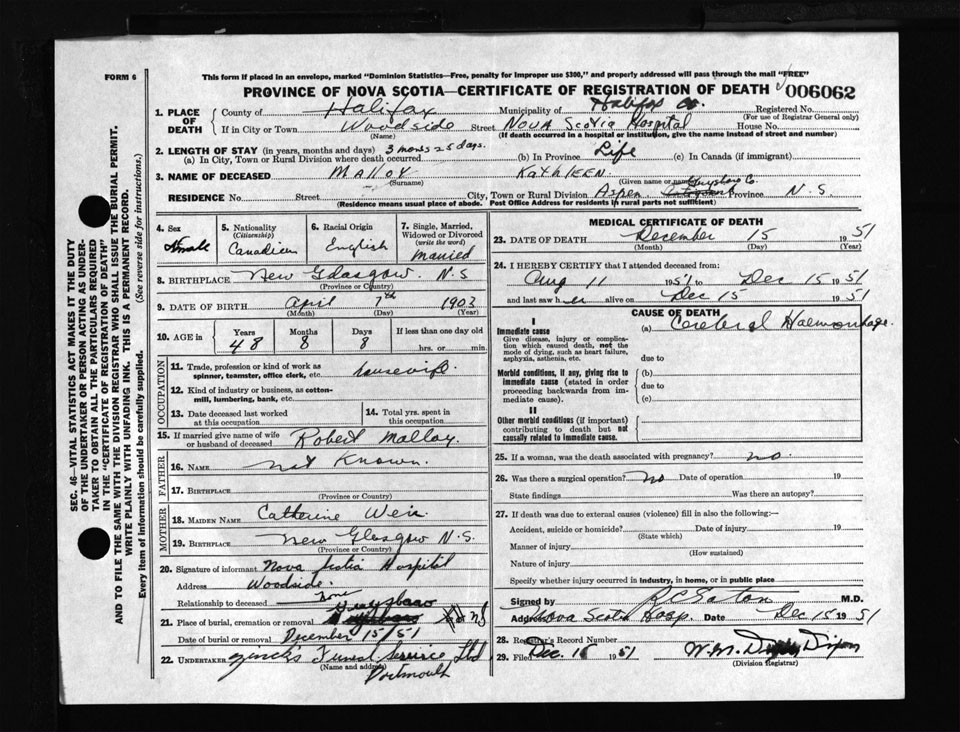 FORM 6
This form if placed in an envelope, marked "Dominion Statistics—Free, penalty for improper use $300," and properly addressed will pass through the mail "FREE"
PROVINCE OF NOVA SCOTIA—CERTIFICATE OF REGISTRATION OF DEATH 006062
1. PLACE OF DEATH
County of Halifax Municipality of Halifax Co. Registered No.
(For use of Registrar General only)
If in City or Town Woodside Street Nova Scotia Hospital House No.
(Name) (If death occurred in a hospital or institution, give the name instead of street and number)
2. LENGTH OF STAY (in years, months and days) 3 months 25 days.
(a) In City, Town or Rural Division where death occurred (b) In Province Life (c) In Canada (if immigrant)
3. NAME OF DECEASED Malloy Kathleen
(Surname) (Given name or names) Guysboro Co.
RESIDENCE No. Street City, Town or Rural Division Aspen Province N.S.
(Residence means usual place of abode. Post Office Address for residents in rural parts not sufficient)
4. Sex
Female
5. Nationality
(Citizenship)
Canadian
6. Racial Origin
English
7. Single, Married, Widowed or Divorced
(write the word)
Married
8. BIRTHPLACE New Glasgow. N.S
(Province or Country)
9. DATE OF BIRTH April 7th 1903
(Month) (Day) (Year)
10. AGE in
Years Months Days If less than one day old
48 8 8 hrs. or min.
OCCUPATION
11. Trade, profession or kind of work as spinner, teamster, office clerk, etc. housewife.
12. Kind of industry or business, as cotton-mill, lumbering, bank, etc.
13. Date deceased last worked at this occupation
14. Total yrs. spent in this occupation
15. If married give name of wife or husband of deceased Robert Malloy.
FATHER
16. NAME Not Known.
17. BIRTHPLACE
(Province or Country)
MOTHER
18. MAIDEN NAME Catherine Weir
19. BIRTHPLACE New Glasgow N.S.
(Province or Country)
20. Signature of informant Nova Scotia Hospital
Address Woodside.
Relationship to deceased None
21. Place of burial, cremation or removal Guysboro
Date of burial or removal December 15/51
22. UNDERTAKER Zinck's Funeral Service Ltd
(Name and address)
Dartmouth
MEDICAL CERTIFICATE OF DEATH
23. DATE OF DEATH December 15 1951
(Month) (Day) (Year)
24. I HEREBY CERTIFY that I attended deceased from:
Aug 11 1951 to Dec 15 1951
and last saw her alive on Dec 15 1951
CAUSE OF DEATH
I
Immediate cause (a) Cerebral Haemorrhage.
Give disease, injury or complication which caused death, not the mode of dying, such as heart failure, asphyxia, asthenia, etc.
due to
Morbid conditions, if any, giving rise to immediate cause (stated in order proceeding backwards from immediate cause).
(b)
due to
(c)
II
Other morbid conditions (if important) contributing to death but not causally related to immediate cause.
25. If a woman, was the death associated with pregnancy? no.
26. Was there a surgical operation? no Date of operation 19
State findings Was there an autopsy?
27. If death was due to external causes (violence) fill in also the following:—
Accident, suicide or homicide? Date of injury 19
(State which)
Manner of injury
(How sustained)
Nature of injury
Specify whether injury occurred in industry, in home, or in public place
Signed by R C Eaton M.D.
Address Nova Scotia Hosp. Date Dec 15 1951
28. Registrar's Record Number
29. Filed Dec. 15 1951 W.M. Dixon
(Division Registrar)
SEC. 46—VITAL STATISTICS ACT MAKES IT THE DUTY
OF THE UNDERTAKER OR PERSON ACTING AS UNDER-
TAKER TO OBTAIN ALL THE PARTICULARS REQUIRED
IN THE "CERTIFICATE OF REGISTRATION OF DEATH"
AND TO FILE THE SAME WITH THE DIVISION REGISTRAR WHO SHALL ISSUE THE BURIAL PERMIT.
WRITE PLAINLY WITH UNFADING INK. THIS IS A PERMANENT RECORD.
Every item of information should be carefully supplied. (See reverse side for instructions.)